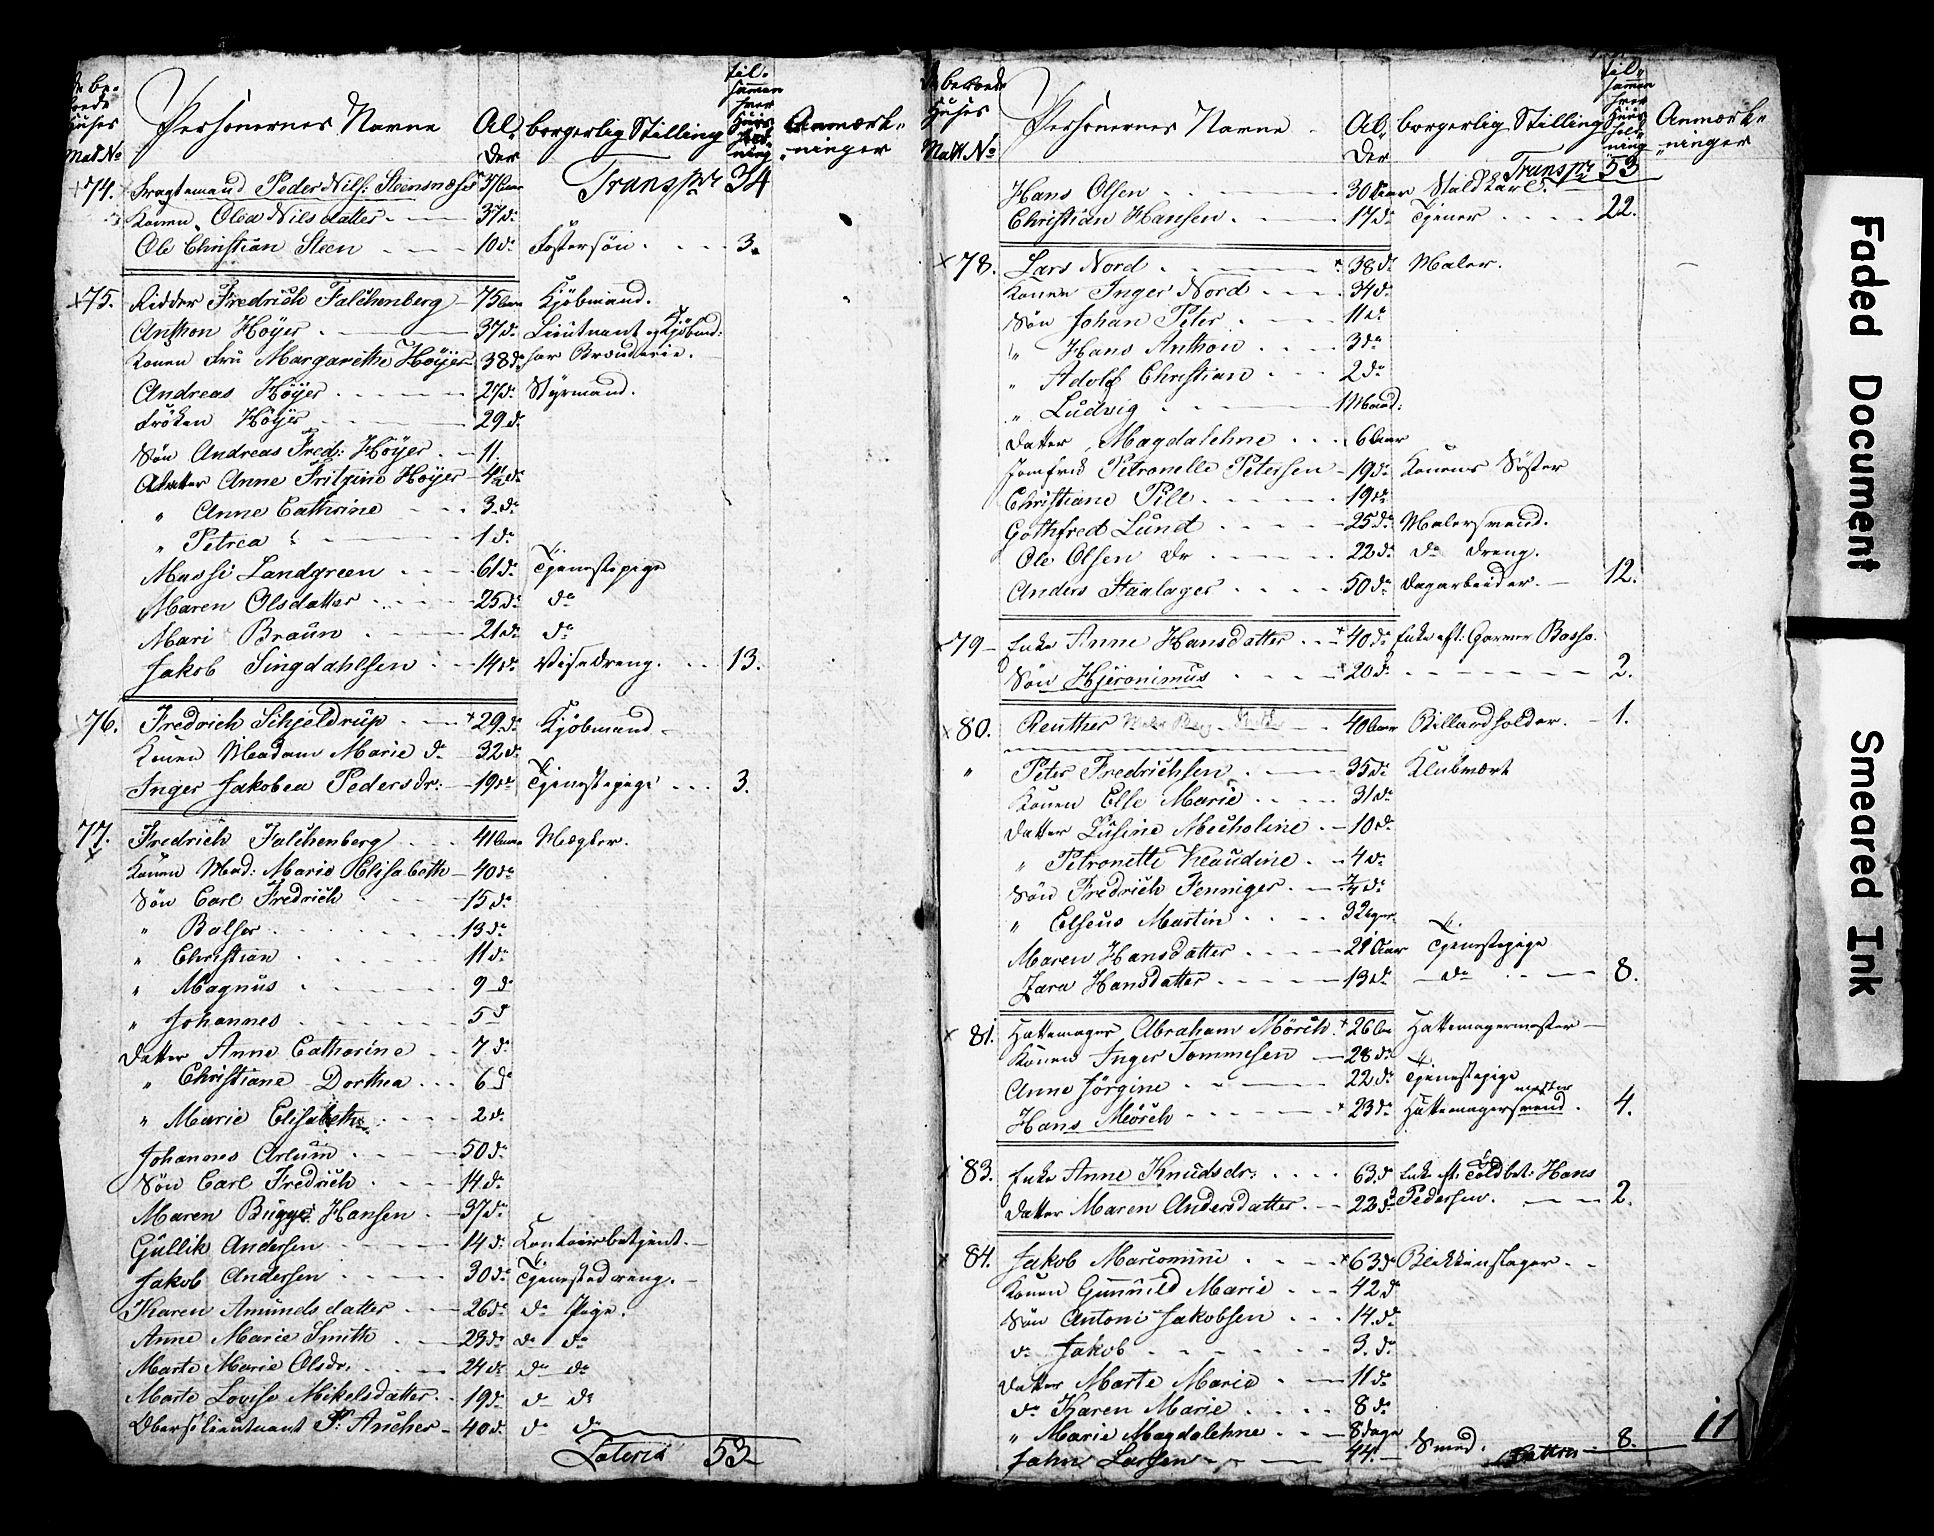 De be-
boede
Huses
Matr No
Personernes Navne
Al,
der
borgerlig Stilling
til-
samen
hver
Huus
hold-
ning
Anmærk-
ninger
74. Fragtemand Peder Nils: Steensnæs 37 Aar Transp: 34
Konen Olea Nilsdatter 37 do
Ole Christian Steen 10 do Fostersön 3.
75. Ridder Fredrich Falchenberg 75 Aar Kjöbmand.
Anthon Höyer 37 do Lieutnant og Kjöbmd:
Konen Fru Margarethe Höyer 38 do har Brænderie.
Andreas Höyer 27 do Styrmand.
Fröken Höyer 29 d.
Sön Andreas Fred: Höyer 11.
Datter Anne Fritzine Höyer 4½ do
" Anne Cathrine 3 do
" Petrea 1 do
Massi Landgreen 61 do Tjenestepige
Maren Olsdatter 25 do do
Mari Braun 21 do do
Jakob Singdahlsen 14 do Visedreng. 13.
76. Fredrich Schjeldrup 29 do Kjöbmand
Konen Madam Marie do 32 do
Inger Jakobea Pedersdr: 19 do Tjenestepige 3.
77. Fredrich Falchenberg 41 Aar Mægler.
Konen Mad: Marie Elisabeth 40 do
Sön Carl Fredrich 15 do
" Balser 13 do
" Christian 11 do
" Magnus 9 d
" Johannes 5 d
Datter Anne Catharine 7 do
" Christiane Dorthea 6 do
" Marie Elisabeth 2 do
Johannes Arlum 50 do
Sön Carl Fredrich 14 do
Maren Bugge Hansen 37 do
Gullik Andersen 14 do Contoirbetjent.
Jakob Andersen 30 do Tjenestedreng.
Karen Amundsdatter 26 do do Pige.
Anne Marie Smith 23 do do do
Marte Marie Olsdr. 24 do do do
Marte Lovise Mikelsdatter 19 do do do
Oberstlieutnant P: Ancher 40 d. d d
Lateris 53
De beboede
Huses
Matr No
Personernes Navne
Al,
der
borgerlig Stilling
til-
samen
hver
Huus
hold-
ning
Anmærk-
ninger
Transp: 53
Hans Olsen 30 Aar Staldkarl.
Christian Hansen 17 do Tjener 22.
78. Lars Nord 38 do Maler.
Konen Inger Nord 34 do
Sön Johan Peter 11 do
" Hans Anthon 3 do
" Adolf Christian 2 do
" Ludvig 1 Maand:
Datter Magdalehne 6 Aar
Jomfru Petronelle Petersen 19 do Konens Söster
Christiane Pill 19 do
Gothfred Lund 25 do Malersvend.
Ole Olsen Dr 22 do do dreng.
Anders Staalager 50 do Dagarbeider. 12.
79 Enke Anne Hansdatter 40 do Enke eft: Garver Basse.
Sön Hjeronimus 20 do 2.
80. Reuther 40 Aar Billardholder. 1.
" Peter Fredrichsen 35 do Klubvært
Konen Else Marie 31 do
Datter Lusine Mecholine 10 do
" Petronette Klaudine 4 do
Sön Fredrich Jenniger 7/4 do
" Elseus Martin 32 Uger
Maren Hansdatter 21 Aar Tjenestepige
Zara Hansdatter 13 do do 8.
81. Hattemager Abraham Mörch 26 Aar Hattemagermester
Konen Inger Tommesen 28 do
Anne Jörgine 22 do Tjenestepige
mester
Hans Mörch 23 do Hattemagersvend. 4.
83. Enke Anne Knudsdr: 63 d Enke eft: Toldbet: Hans
Datter Maren Andersdatter 22 d Pedersen. 2.
84. Jakob Marcomini 63 d Blikkenslager
Konen Gunnild Marie 42 d
Sön Antoni Jakobsen 14 do
do Jakob 3. do
Datter Marte Marie 11 do
do Karen Marie 8 do
" Marie Magdalehne 8 dage
Jahn Larsen 44 Smed. 8.
Lateris
11
Faded Document
Smeared Ink